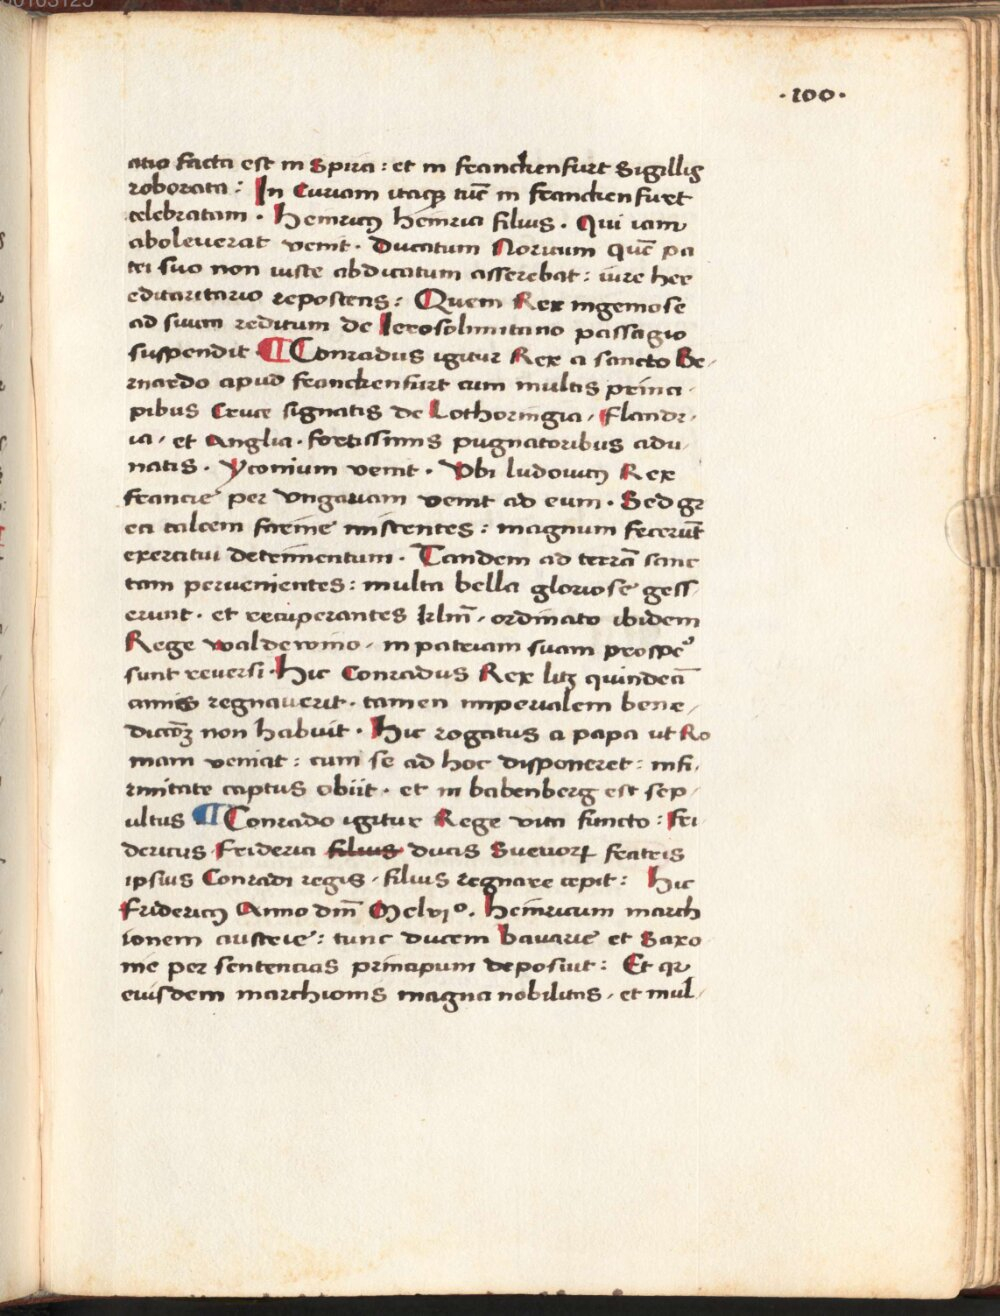 00103125
·100·
atio facta est in Spira : et in franckenfurt Sigillis
roborata : In Curiam itaqꝫ tūc in franckenfurt
celebratam · Heinricꝰ heinrici filius · Qui iam
aboleuerat venit · Ducatum Noricum Quē pa
tri suo non iuste abdicatum asserebat : iure her
editaritario reposcens : Quem Rex ingeniose
ad suum reditum de Ierosolimitano passagio
suspendit ¶ Conradus igitur Rex a sancto Be-
rnardo apud franckenfurt cum multis princi-
pibus Cruce signatis de Lothoringia · Flandr-
ia · et Anglia · fortissimis pugnatoribus adu-
natis · Yconium venit · Vbi ludouicꝰ Rex
francie per Vngariam venit ad eum · Sed gr
eci calcem farine miscentes : magnum fecerūt
exercitui detrimentum · Tandem ad terrā sanc
tam peruenientes : multa bella gloriose gess-
erunt · et recuperantes Irlm̄ · ordinato ibidem
Rege walderwino · in patriam suam prospeꝰ
sunt reuersi · Hic Conradus Rex licꝫ quindeci
annis regnauerit · tamen imperialem bene-
dicc̄oꝫ non habuit · Hic rogatus a papa ut Ro
mam veniat : cum se ad hoc disponeret : infi-
rmitate captus obiit · et in babenberg est sep-
ultus ¶ Conrado igitur Rege vita functo : Fri
dericus Friderici filius ducis Sueuorꝝ fratris
ipsius Conradi regis · filius regnare cepit : Hic
Fridericꝰ Anno dm̄ Mclvjº · Heinricum march
ionem austrie : tunc ducem bauarie et Saxo
nie per sentencias principum deposuit : Et qꝛ
eiusdem marchionis magna nobilitas · et mul-